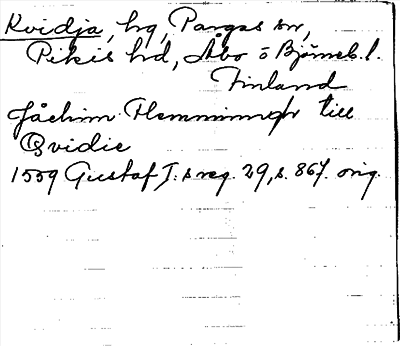 Kvidja, hg, Pargas sn,
Pikis hd, Åbo o Björneb. l.
Finland
Jåchim Flemming till
Qvidie
1559 Gustaf I:s reg. 29, s. 867. orig.